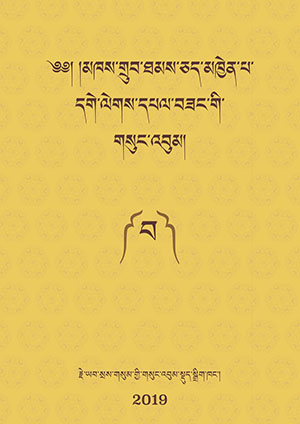 ༄༅། །མཁས་གྲུབ་ཐམས་ཅད་མཁྱེན་པ་
དགེ་ལེགས་དཔལ་བཟང་གི་
གསུང་འབུམ།
བ
རྗེ་ཡབ་སྲས་གསུམ་གྱི་གསུང་འབུམ་སྡུད་སྒྲིག་ཁང་།
2019